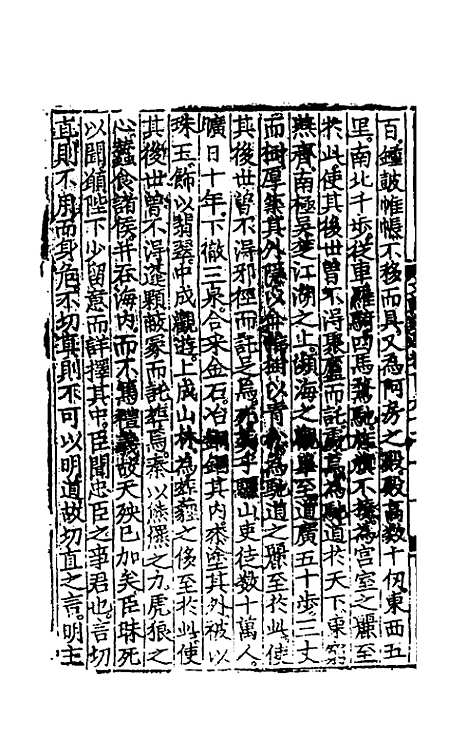 百鍾皷帷帳不移而具又為阿房之殿殿高數十仞東西五
里南北千步從車羅騎四馬騖馳旌旗不撓為宮室之麗至
於此使其後世曾不得聚廬而託處焉為馳道於天下東窮
燕齊南極吳楚江湖之上瀕海之觀畢至道廣五十步三丈
而樹厚築其外隱以金椎樹以青松為馳道之麗至於此使
其後世曾不得邪徑而託足焉死葬乎驪山吏徒數十萬人
曠日十年下徹三泉合采金石冶銅錮其內桼塗其外被以
珠玉飾以翡翠中成觀游上成山林為葬薶之侈至於此使
其後世曾不得蓬顆蔽冢而託葬焉秦以熊羆之力虎狼之
心蠶食諸侯并吞海內而不篤禮義故天殃已加矣臣昧死
以聞願陛下少留意而詳擇其中臣聞忠臣之事君也言切
直則不用而身危不切直則不可以明道故切直之言明主